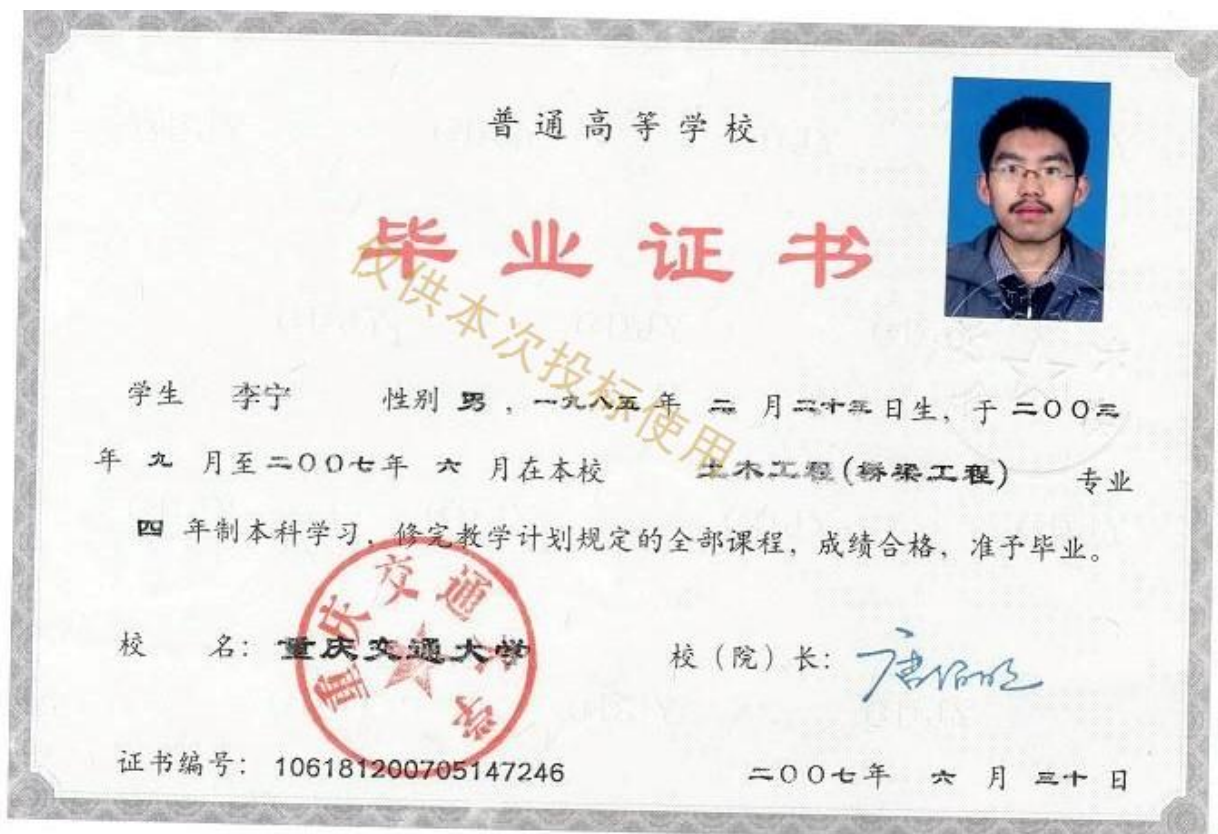 普通高等学校
毕业证书
仅供本次投标使用
学生 李宁 性别 男，一九八五年 二 月二十三日生，于 二〇〇三
年 九 月至二〇〇七年 六 月在本校 土木工程(桥梁工程) 专业
四 年制本科学习，修完教学计划规定的全部课程，成绩合格，准予毕业。
重庆交通大学
校 名：重庆交通大学 校（院）长：唐伯明
证书编号：106181200705147246 二〇〇七年 六 月 三十 日